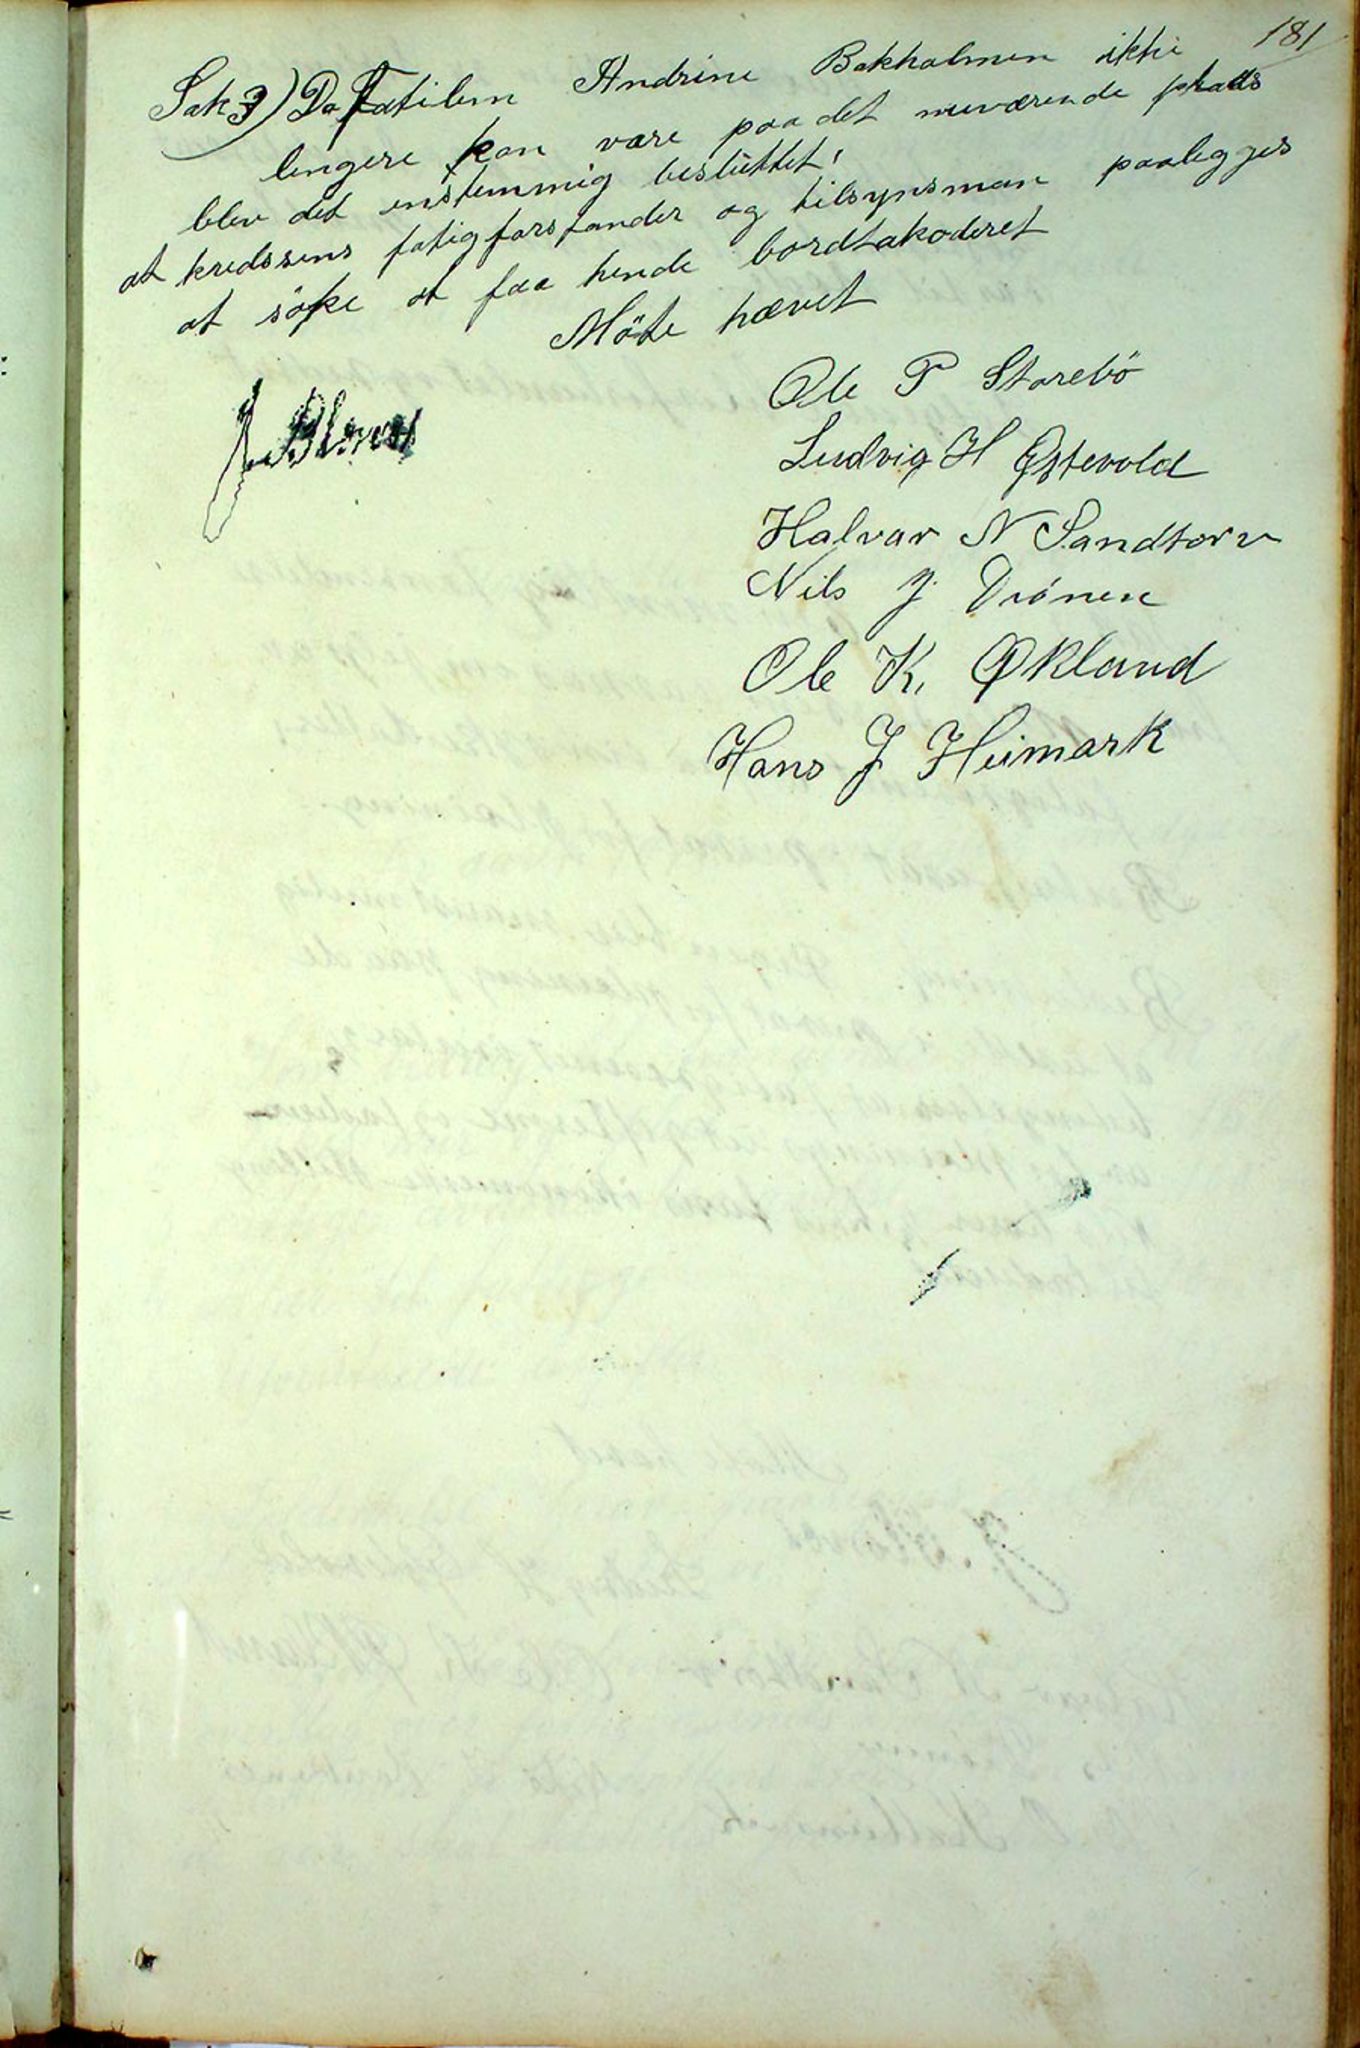 181
Sak 3) Da Fatilem Andrine Bakholmen ikke
lengere kan være paa det nuværende plads
blev det enstemmig besluttet:
at kredssens fatigforstander og tilsynsman paalegges
at söke at faa hende bordtakoderet
Möte hævet
Ole P Storebö
Ludvig H Østevold
Halvar N Sandtorv
Nils J. Drönen
Ole K. Økland
Hans J Heimark